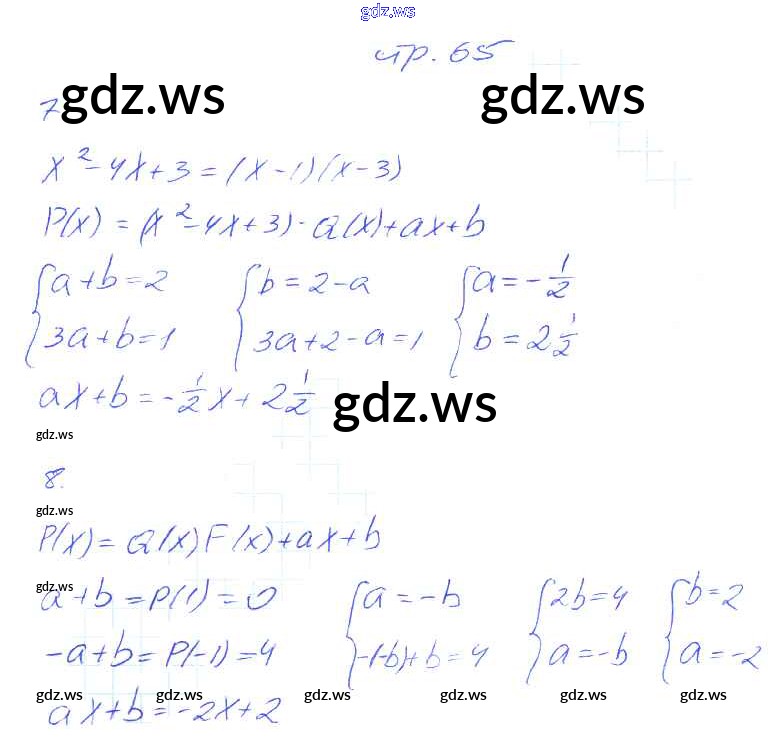 gdz.ws
стр. 65
gdz.ws gdz.ws
7
x² - 4x + 3 = (x - 1)(x - 3)
P(x) = (x² - 4x + 3) · Q(x) + ax + b
{ a + b = 2 { b = 2 - a { a = -1/2
{ 3a + b = 1 { 3a + 2 - a = 1 { b = 2 1/2
ax + b = -1/2 x + 2 1/2 gdz.ws
gdz.ws
8.
gdz.ws
P(x) = Q(x) F(x) + ax + b
gdz.ws
a + b = P(1) = 0 { a = -b { 2b = 4 { b = 2
-a + b = P(-1) = 4 { -(-b) + b = 4 { a = -b { a = -2
gdz.ws gdz.ws gdz.ws gdz.ws gdz.ws gdz.ws
ax + b = -2x + 2